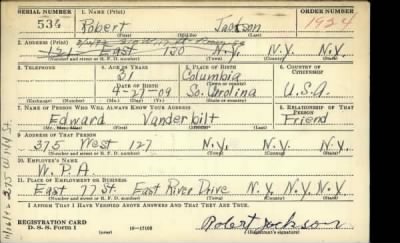 SERIAL NUMBER 1. NAME (Print) ORDER NUMBER
534 Robert Jackson 1924
(First) (Middle) (Last)
2. ADDRESS (Print)
East 130 N.Y. N.Y.
(Number and street or R. F. D. number) (Town) (County) (State)
3. TELEPHONE 4. AGE IN YEARS 5. PLACE OF BIRTH 6. COUNTRY OF CITIZENSHIP
31 Columbia
DATE OF BIRTH (Town or county)
4-27-09 So. Carolina U.S.A.
(Exchange) (Number) (Mo.) (Day) (Yr.) (State or country)
7. NAME OF PERSON WHO WILL ALWAYS KNOW YOUR ADDRESS 8. RELATIONSHIP OF THAT PERSON
Edward Vanderbilt Friend
(First) (Middle) (Last)
9. ADDRESS OF THAT PERSON
375 West 127 N.Y. N.Y.
(Number and street or R. F. D. number) (Town) (County) (State)
10. EMPLOYER'S NAME
W.P.A.
11. PLACE OF EMPLOYMENT OR BUSINESS
East 77 St. East River Drive N.Y. N.Y. N.Y.
(Number and street or R. F. D. number) (Town) (County) (State)
I AFFIRM THAT I HAVE VERIFIED ABOVE ANSWERS AND THAT THEY ARE TRUE.
REGISTRATION CARD
D. S. S. FORM 1 Robert Jackson
(Registrant's signature)